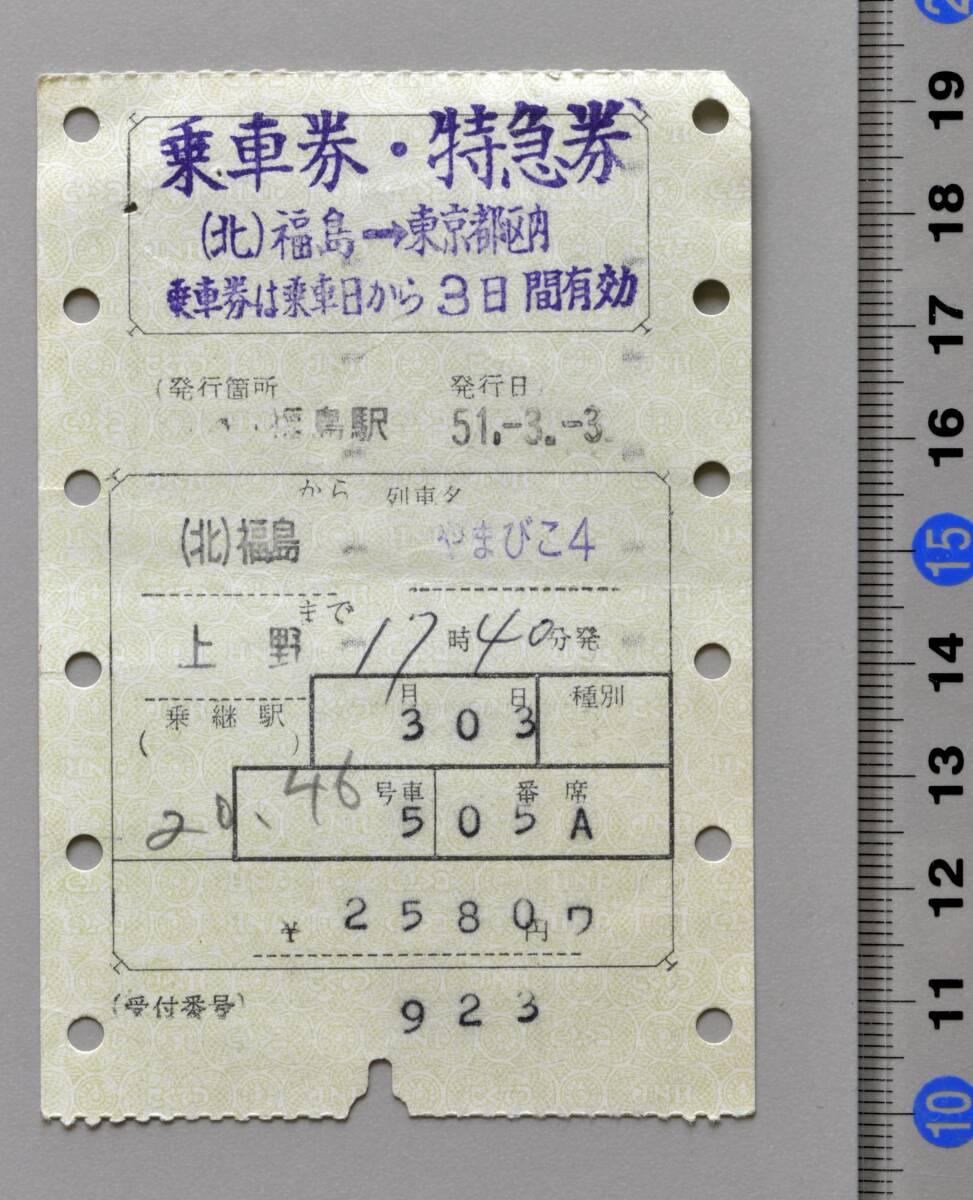 乗車券・特急券
(北)福島→東京都区内
乗車券は乗車日から3日間有効
(発行箇所 発行日
福島駅 51.-3.-3
から 列車名
(北)福島 やまびこ4
まで
上野 17時40分発
乗継駅 月 日 種別
( ) 3 0 3
20、46 号車 番 席
5 0 5 A
¥ 2580円 ワ
(受付番号) 923
19
18
17
16
15
14
13
12
11
10